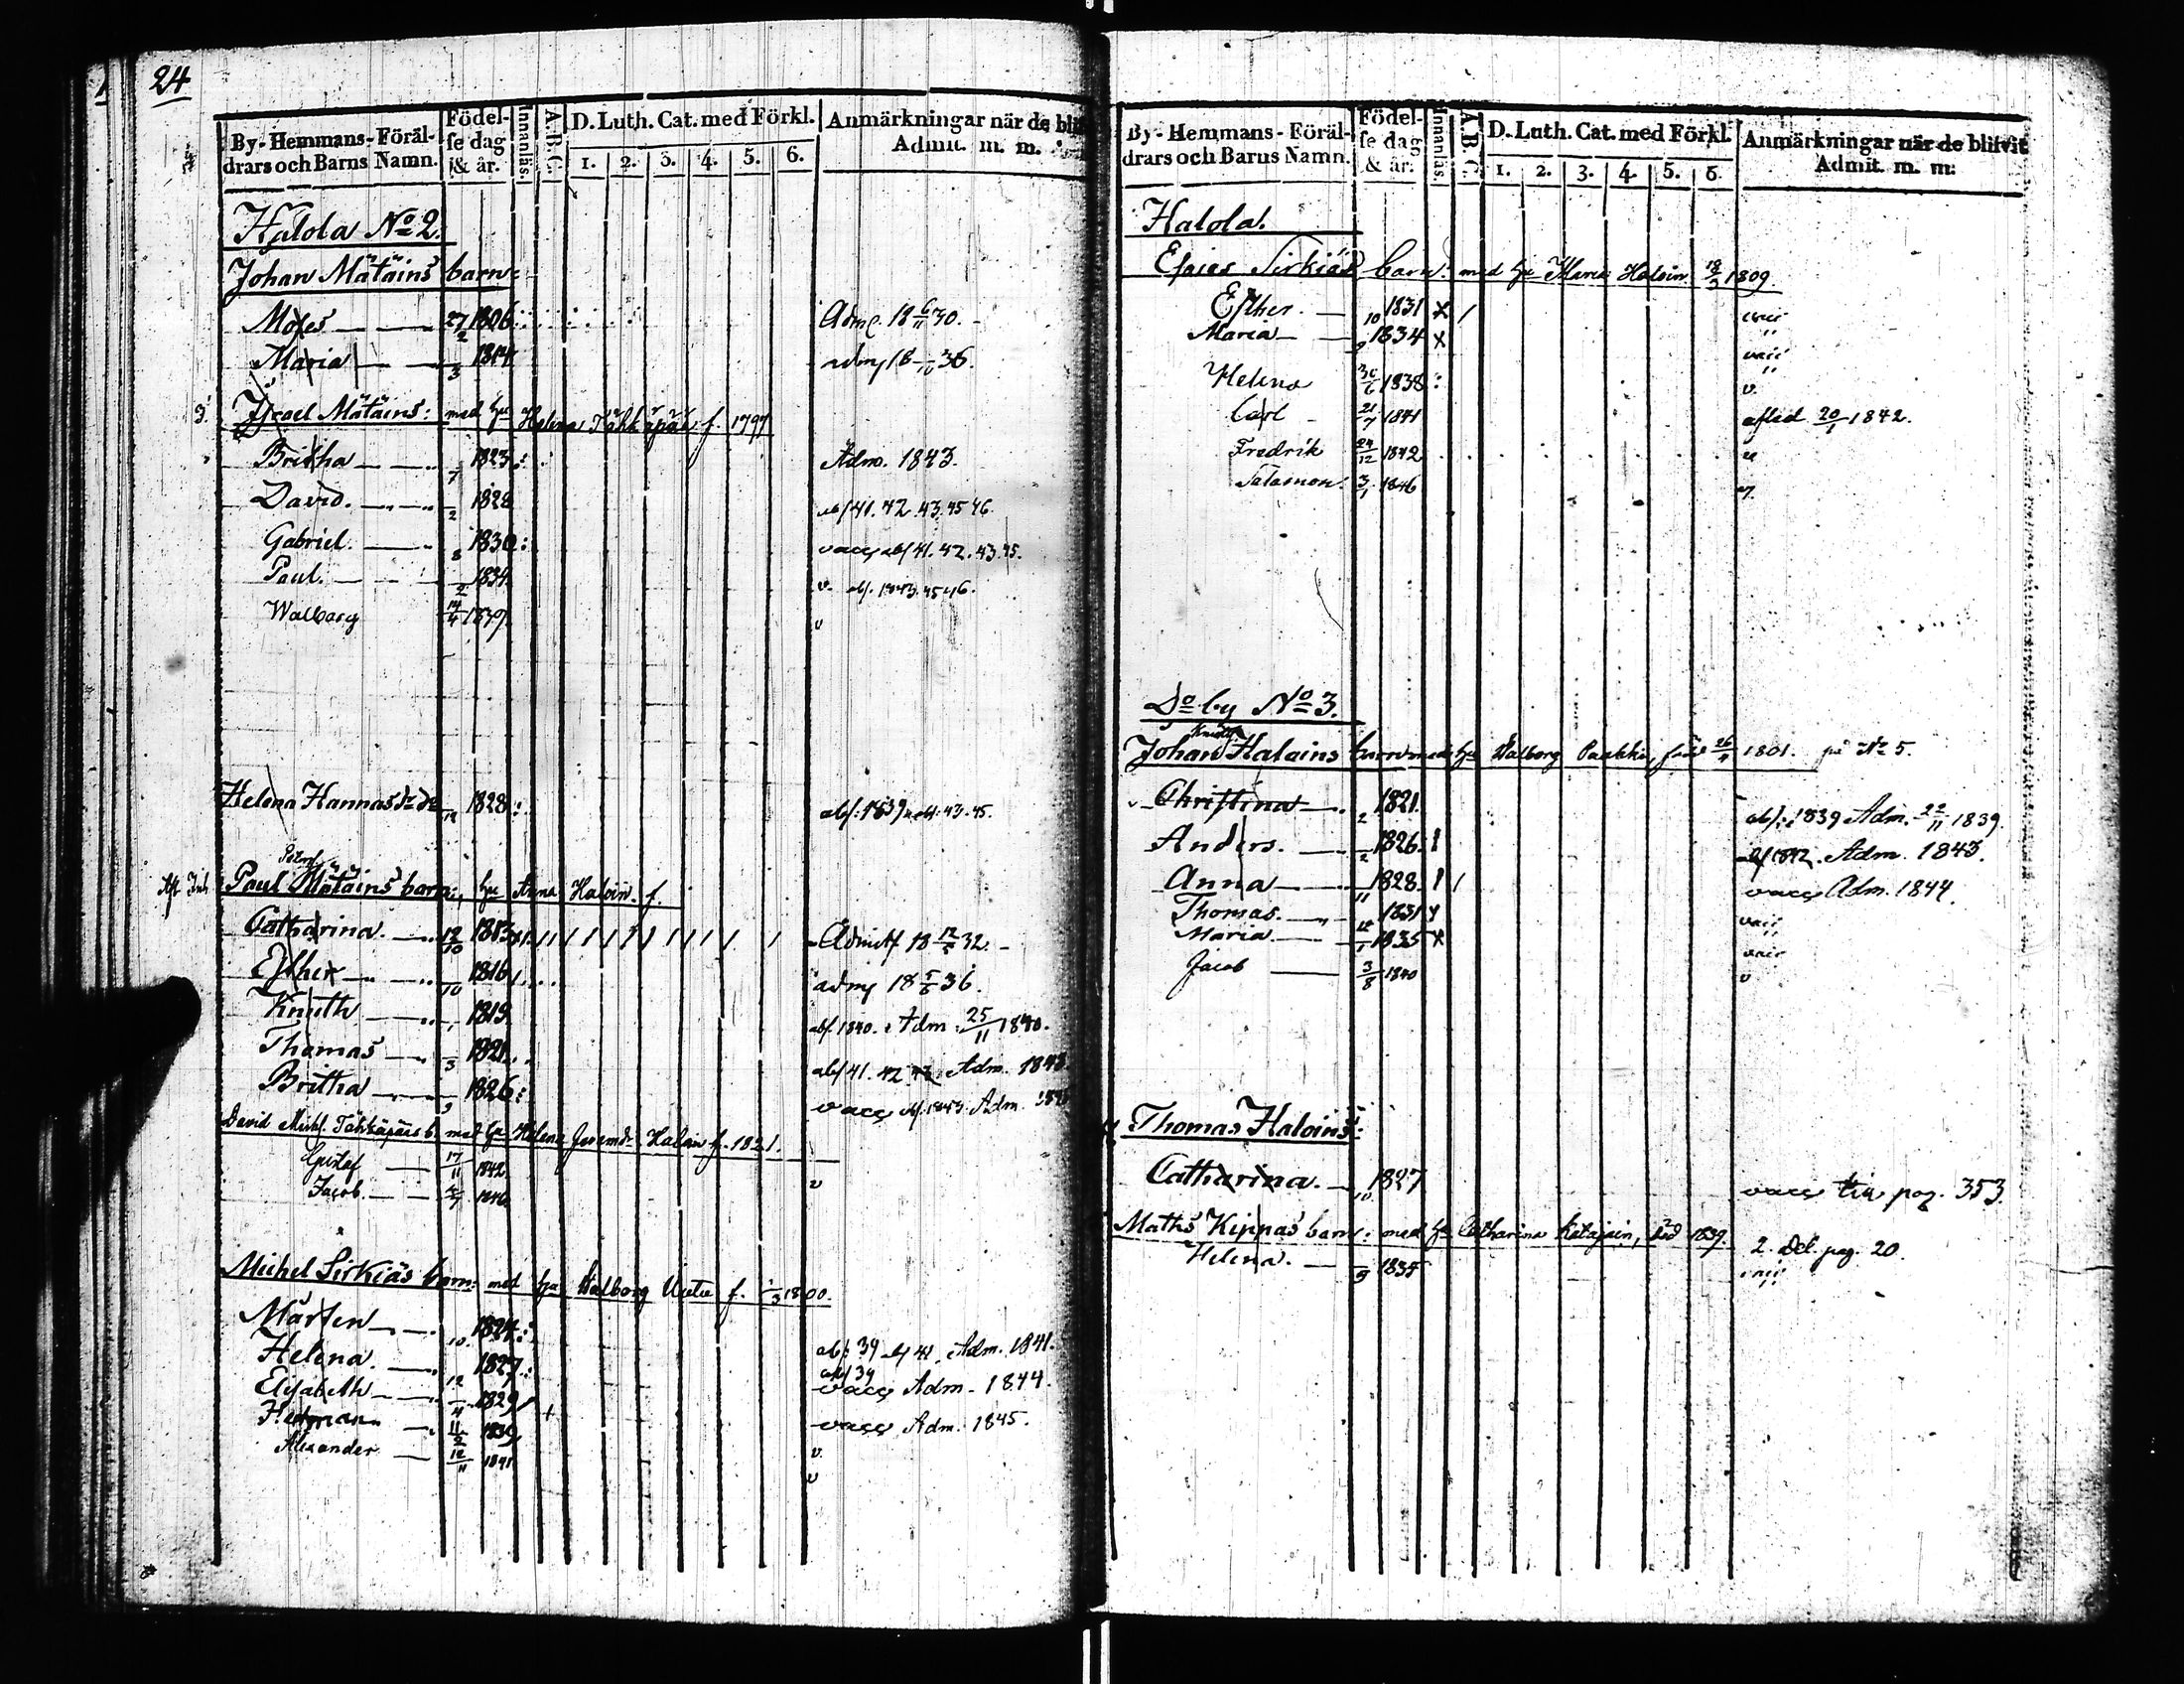 24
By-Hemmans-Föräl-drars och Barns Namn. Födel-se dag & år. Innanläs. A.B.C. D. Luth. Cat. med Förkl. 1. 2. 3. 4. 5. 6. Anmärkningar när de Admit. m. m.
Halola No 2.
Johan Mätäins barn:
Moses 27/2 1806 Adm. 18 6/11 30.
Maria 3 1814 18 36.
Israel Mätäins: med hu Helena Tahkäpää f. 1797
Britha 7 1823 Adm. 1843.
David. 2 1828 abs 41. 42. 43. 45 46.
Gabriel. 8 1830: vacc abs 41. 42. 43. 45.
Paul. 2 1834. v. abs. 1843. 45 46.
Walborg 14/4 1839. v
Helena Hannasdr 1828: abs: 1839 43. 45.
Paul Mätäins barn; hu Anna Haloin f.
Catharina. 12/10 1813 Admitt 18 12/5 32.
Esther 10 1816 adm 18 5/6 36.
Knuth 1819. abs. 1840. Adm. 25/11 1840.
Thomas 3 1821. abs 41. 42 43 Adm. 1843.
Britha 9 1826: vacc abs. 1843. Adm.
David Michl. Tahkäpääs b. med hu Helena Haloin f. 1821.
Gustaf 17/11 1842.
Jacob. 1846. v
Michel Sirkiäs barn: med hu Walborg f. 3 1800.
Mårten 10. 1824: abs: 39 abs 41. Adm. 1841.
Helena. 12 1827: abs 39 vacc Adm. 1844.
Elisabeth 4 1829 vacc Adm. 1845.
Hedman 11/2 1839 v.
Alexander 12/11 1841 v
By-Hemmans-Föräl-drars och Barns Namn. Födel-se dag & år. Innanläs. A.B.C. D. Luth. Cat. med Förkl. 1. 2. 3. 4. 5. 6. Anmärkningar när de blifvit Admit. m. m:
Halola.
Esaias Sirkiäs barn: med hu Maria Haloin 18/3 1809.
Esther. 10 1831 x / vacc
Maria 9 1834 x vacc
Helena 30/6 1838: v.
Carl 21/7 1841 afled 20/1 1842.
Fredrik 24/12 1842 v
Salamon. 3/1 1846 v.
Do by No 3.
Johan Haloins barn med hu Walborg Paakki, född 26 1801. på No 5.
Christina 2 1821. abs: 1839 Adm. 22/11 1839.
Anders. 2 1826. abs 1842. Adm. 1843.
Anna 11 1828. vacc Adm. 1844.
Thomas. 1831 vacc
Maria 12/1 1835 x vacc
Jacob 3/8 1840 v
Thomas Haloins:
Catharina. 10 1827 vacc pag. 353
Maths Kippas barn: med hu Catharina Katajain, död 1839. 2. Del. pag. 20.
Helena. 9 1835 vacc